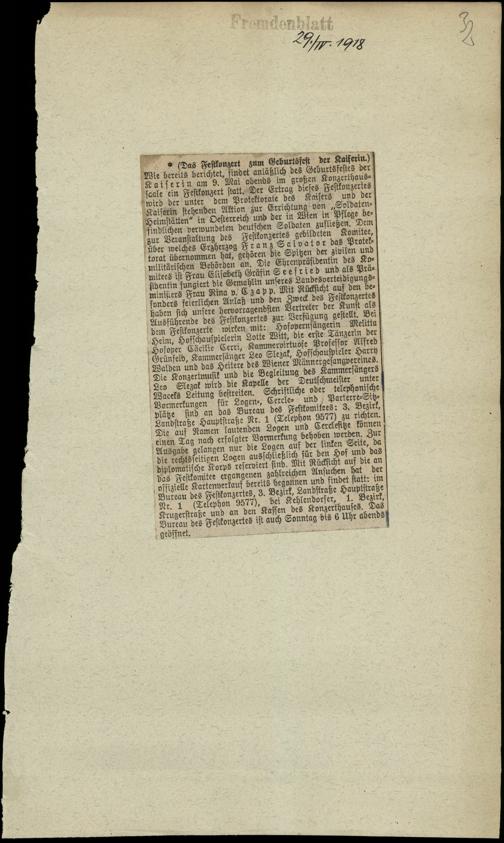 Fremdenblatt
29./IV. 1918
32
* (Das Festkonzert zum Geburtsfest der Kaiserin.)
Wie bereits berichtet, findet anläßlich des Geburtsfestes der
Kaiserin am 9. Mai abends im großen Konzerthaus-
saale ein Festkonzert statt. Der Ertrag dieses Festkonzertes
wird der unter dem Protektorate des Kaisers und der
Kaiserin stehenden Aktion zur Errichtung von „Soldaten-
Heimstätten" in Oesterreich und der in Wien in Pflege be-
findlichen verwundeten deutschen Soldaten zufließen. Dem
zur Veranstaltung des Festkonzertes gebildeten Komitee,
über welches Erzherzog Franz Salvator das Protek-
torat übernommen hat, gehören die Spitzen der zivilen und
militärischen Behörden an. Die Ehrenpräsidentin des Ko-
mitees ist Frau Elisabeth Gräfin Seefried und als Prä-
sidentin fungiert die Gemahlin unseres Landesverteidigungs-
ministers Frau Rina v. Czapp. Mit Rücksicht auf den be-
sonders feierlichen Anlaß und den Zweck des Festkonzertes
haben sich unsere hervorragendsten Vertreter der Kunst als
Ausführende des Festkonzertes zur Verfügung gestellt. Bei
dem Festkonzerte wirken mit: Hofopernsängerin Melitta
Heim, Hofschauspielerin Lotte Witt, die erste Tänzerin der
Hofoper Cäcilie Cerri, Kammervirtuose Professor Alfred
Grünfeld, Kammersänger Leo Slezak, Hofschauspieler Harry
Walden und das Heitere des Wiener Männergesangvereines.
Die Konzertmusik und die Begleitung des Kammersängers
Leo Slezak wird die Kapelle der Deutschmeister unter
Waceks Leitung bestreiten. Schriftliche oder telephonische
Vormerkungen für Logen-, Cercle- und Parterre-Sitz-
plätze sind an das Bureau des Festkomitees: 3. Bezirk,
Landstraße Hauptstraße Nr. 1 (Telephon 9577) zu richten.
Die auf Namen lautenden Logen und Cerclesitze können
einen Tag nach erfolgter Vormerkung behoben werden. Zur
Ausgabe gelangen nur die Logen auf der linken Seite, da
die rechtsseitigen Logen ausschließlich für den Hof und das
diplomatische Korps reserviert sind. Mit Rücksicht auf die an
das Festkomitee ergangenen zahlreichen Ansuchen hat der
offizielle Kartenverkauf bereits begonnen und findet statt: im
Bureau des Festkonzertes, 3. Bezirk, Landstraße Hauptstraße
Nr. 1 (Telephon 9577), bei Kehlendorfer, 1. Bezirk,
Krugerstraße und an den Kassen des Konzerthauses. Das
Bureau des Festkonzertes ist auch Sonntag bis 6 Uhr abends
geöffnet.